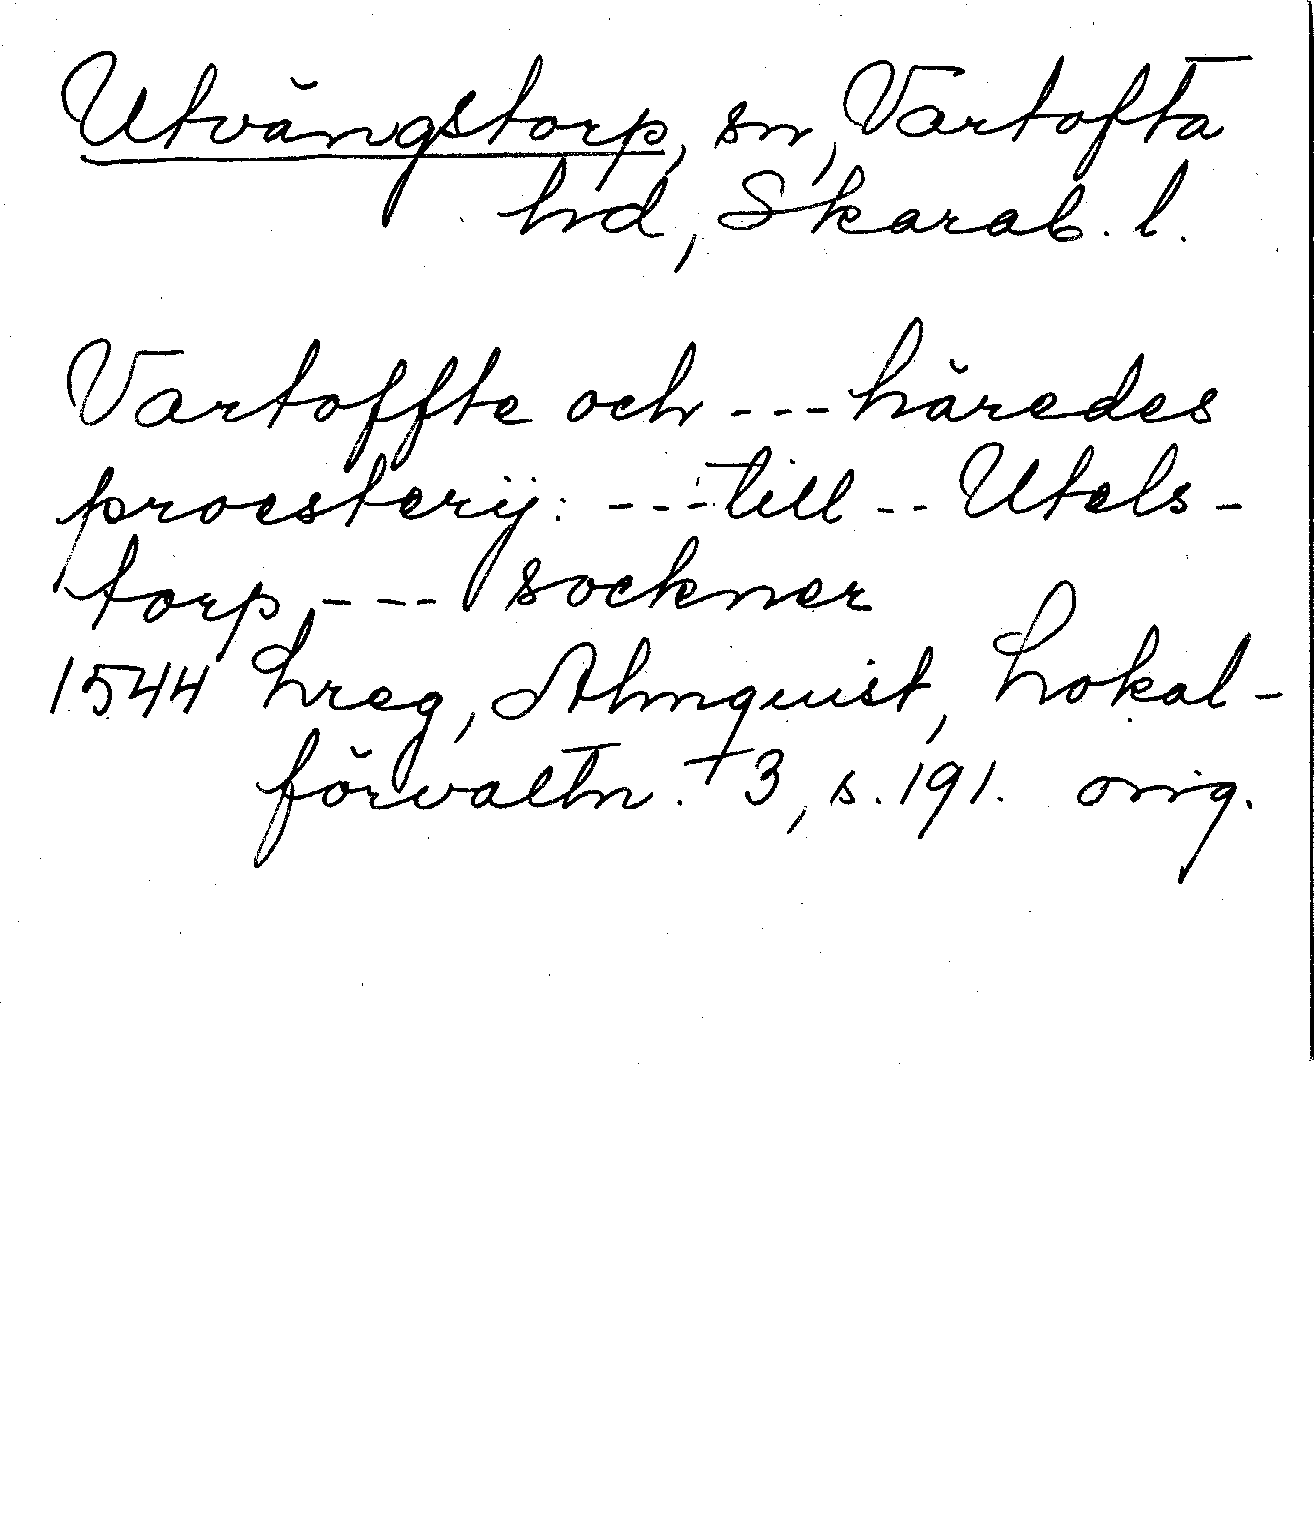 Utvängstorp, sn, Vartofta
hd, Skarab. l.
Vartoffte och --- häredes
proesterij: --- till -- Utels-
torp --- sockner
1544 Lreg, Almquist, Lokal-
förvaltn. + 3, s. 191. orig.